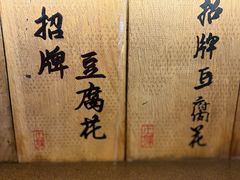 招牌
豆腐花
招牌豆腐花